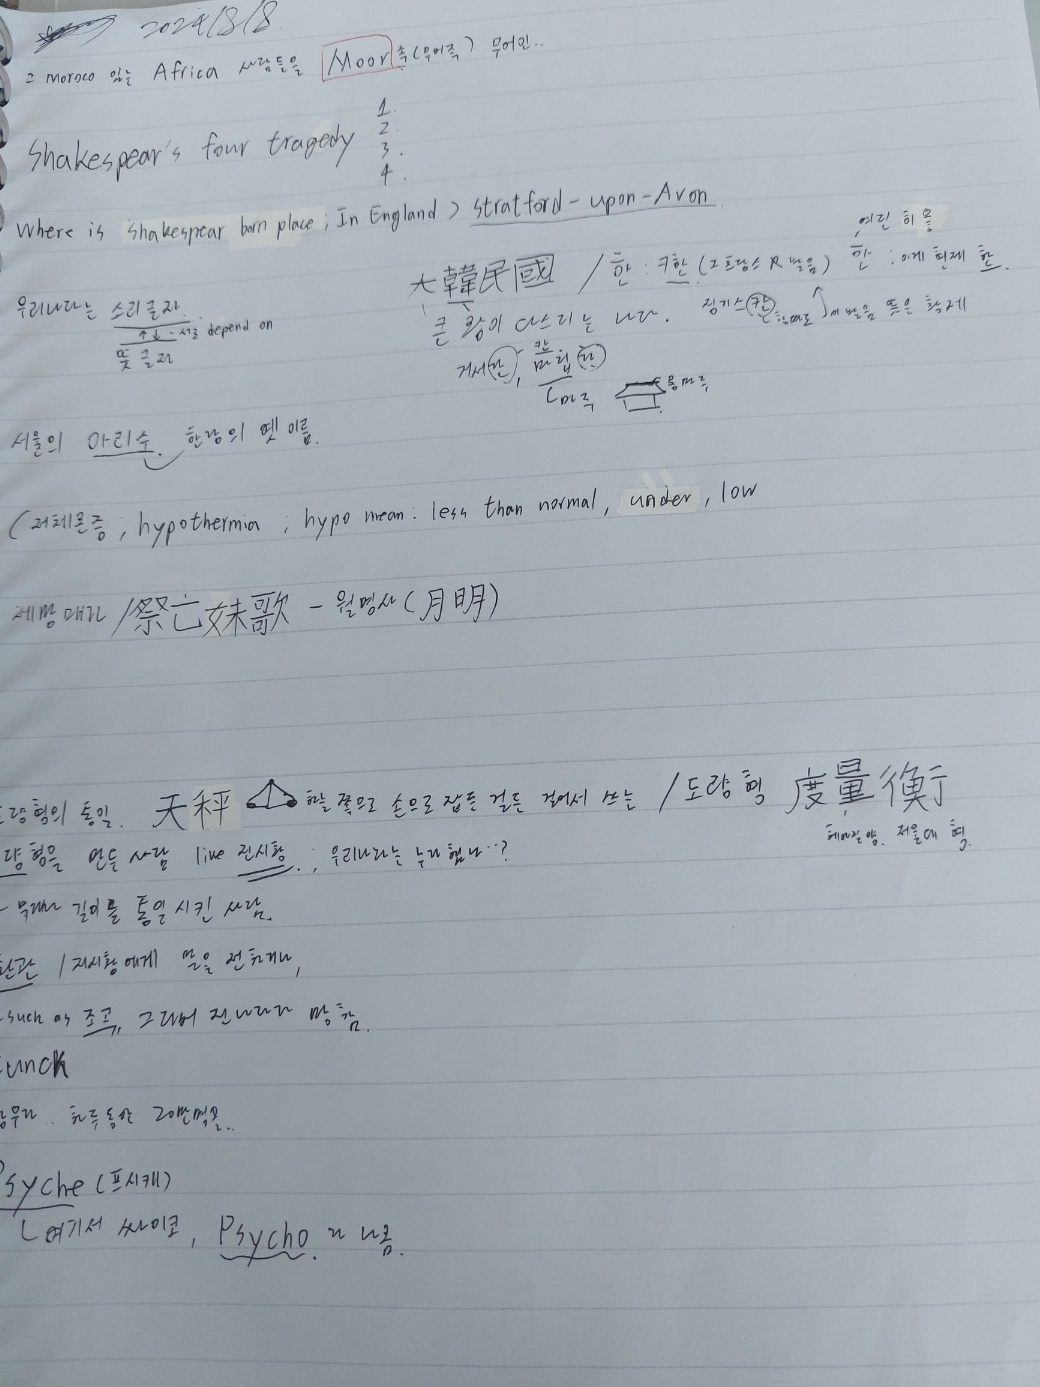 2024/8/8
moroco 있는 Africa 사람들을 Moor족(무어족) 무어인..
Shakespear's four tragedy
1.
2.
3.
4.
Where is shakespear born place ; In England > stratford-upon-Avon
여린 히읗
大韓民國 / 한 : 크한 (프랑스 R 발음) 한 : 이게 현재 한.
우리나라는 소리글자.
서로 depend on
뜻 글자
큰 왕이 다스리는 나라. 징기스칸
거서한, 마립한
칸
마루
용마루
서울의 아리수. 한강의 옛 이름.
(저체온증 ; hypothermia ; hypo mean : less than normal, under, low
제망매가 / 祭亡妹歌 - 월명사 (月明)
량형의 통일. 天秤 한쪽으로 손으로 잡든 걸든 걸어서 쓰는 / 도량형 度量衡
헤아릴 양. 저울대 형.
량형을 만든 사람 live 진시황. ; 우리나라는 누가 했나..?
무게와 길이를 통일시킨 사람.
환관 / 진시황에게 말을 전하거나,
such as 조고, 그래서 진나라가 망함.
unck
하루동안 20만 명
Psyche (프시케)
여기서 싸이코, Psycho가 나옴.